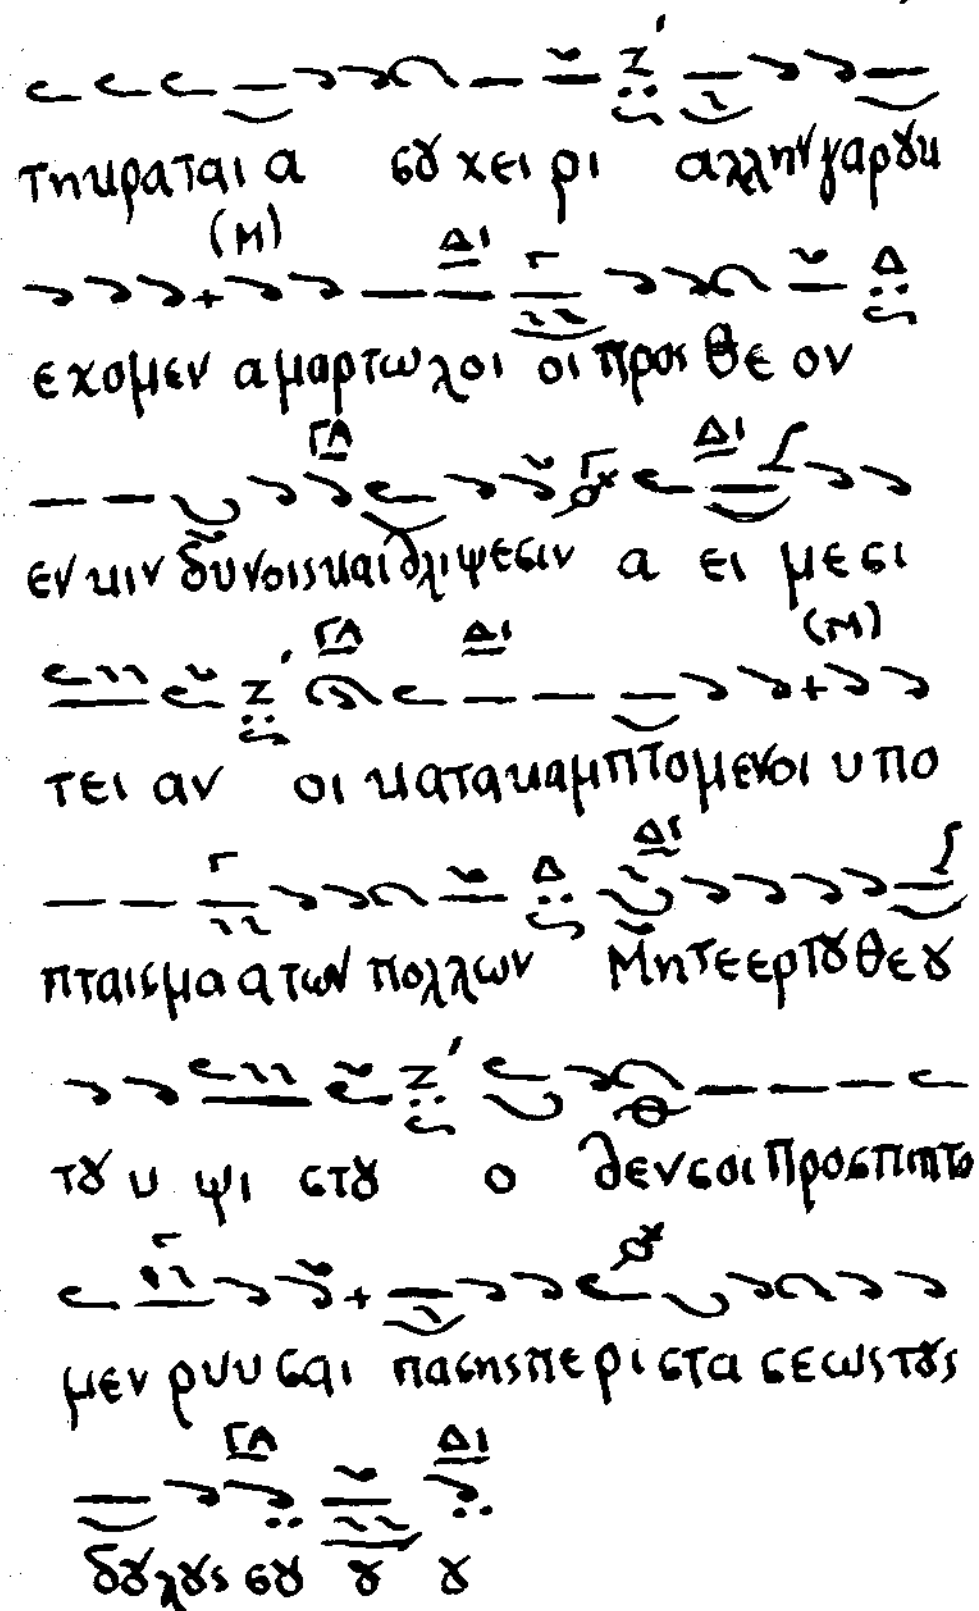 τη κραταια σȣ χειρι αλλην γαρ ȣκ
(Μ) Δι
εχομεν αμαρτωλοι οι προς θεον
ΓΑ Δι
εν κινδυνοις και θλιψεσιν αει μεσι
ΓΑ Δι (Μ)
τειαν οι κατακαμπτομενοι υπο
Δι
πταισμαατων πολλων Μητεερ τȣ θεȣ
τȣ υψιστȣ οθεν σοι προσπιπτο
μεν ρυυσαι πασης περιστασεως τȣς
ΓΑ Δι
δȣλȣς σȣ ȣ ȣ